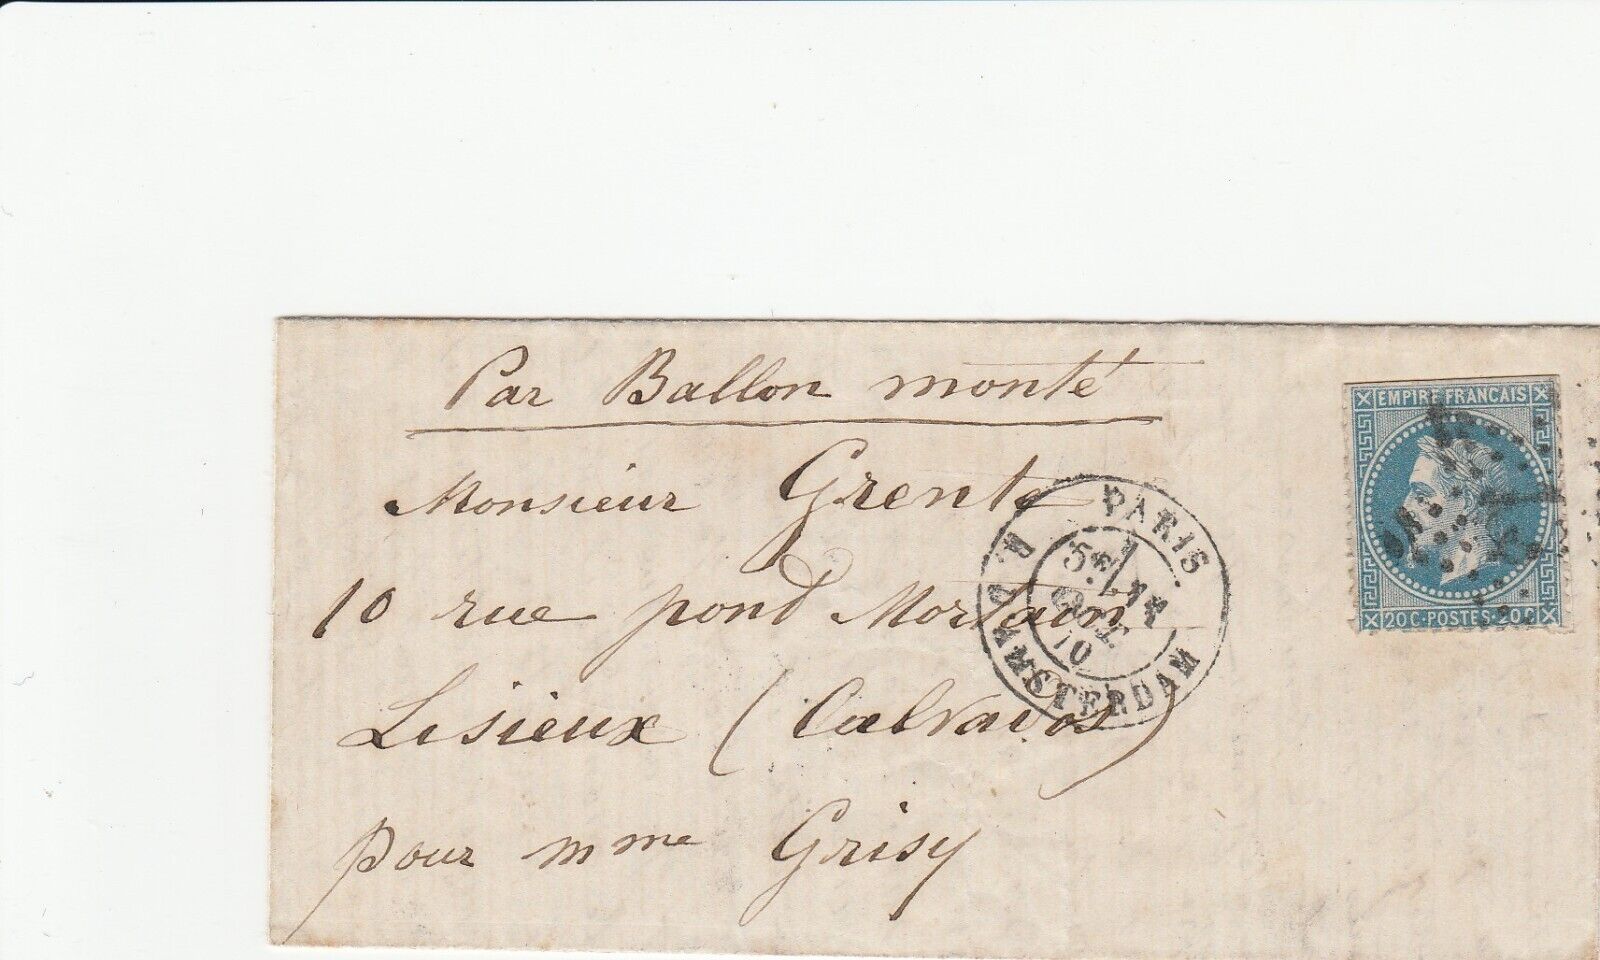 Par Ballon monté
EMPIRE FRANCAIS
Monsieur Grente
PARIS
R. D'AMSTERDAM
5E
OCT.
70
10 rue pond Mortain
20 C · POSTES · 20 C
Lisieux (Calvados)
pour Mme Grisy